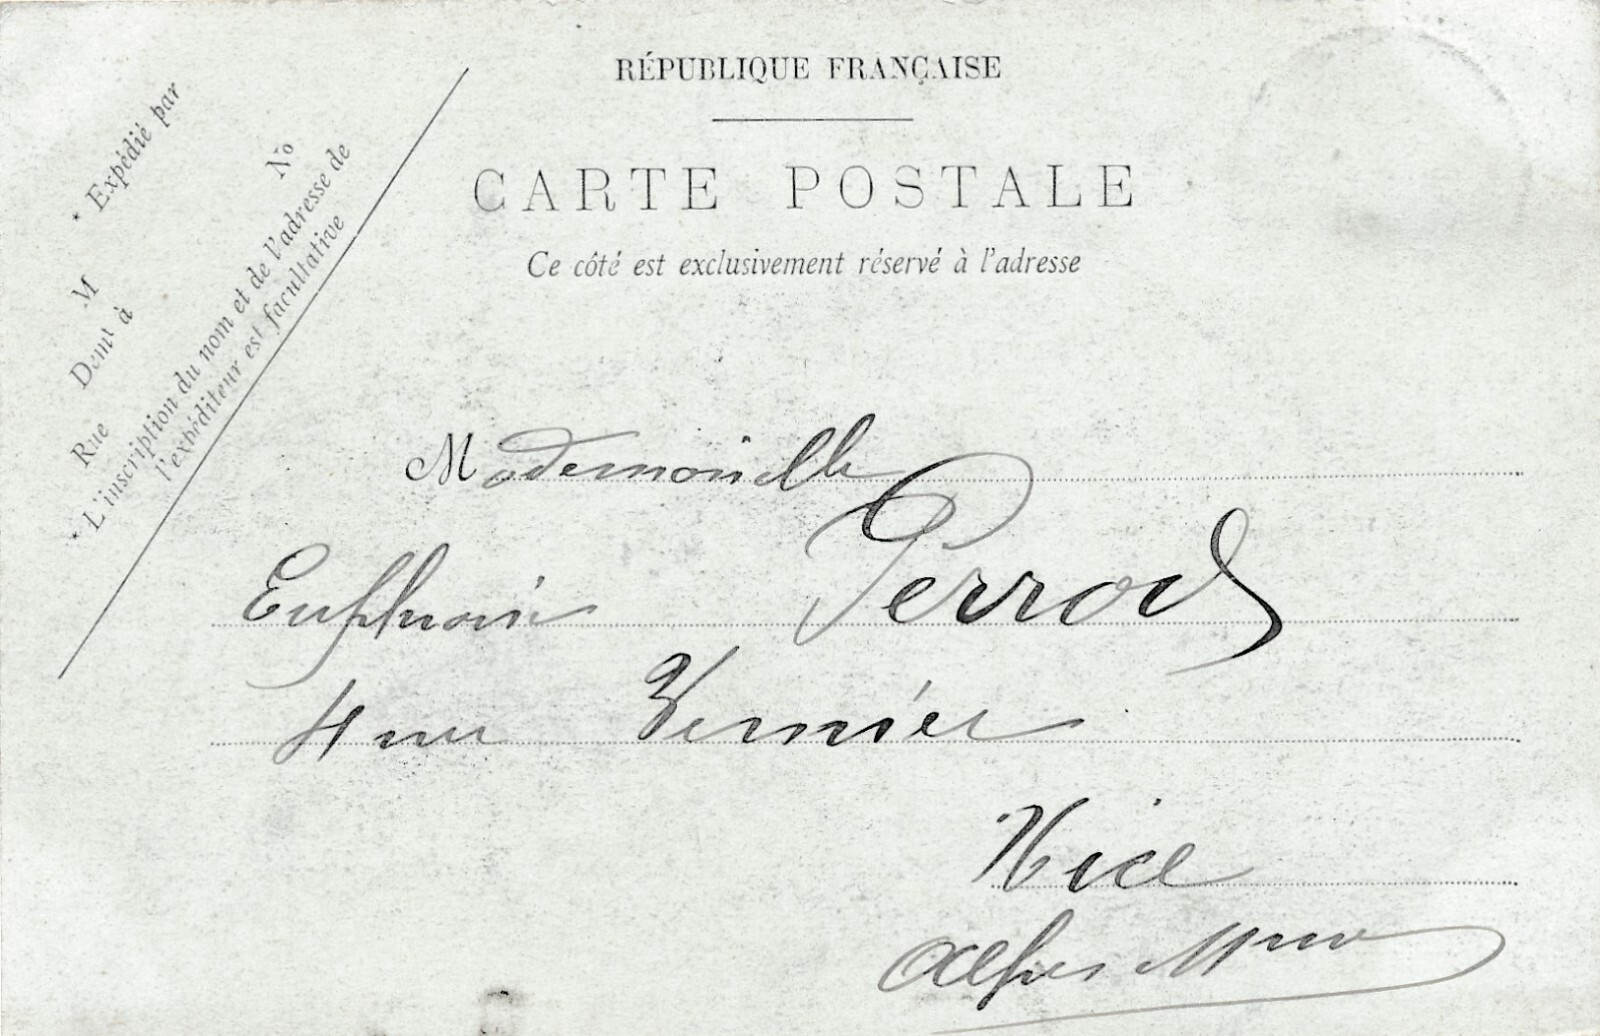 RÉPUBLIQUE FRANÇAISE
CARTE POSTALE
Ce côté est exclusivement réservé à l'adresse
* Expédié par
M
Demt à
Rue No
* L'inscription du nom et de l'adresse de
l'expéditeur est facultative
Mademoiselle
Perrod
4 rue Vernier
Nice
Alpes Mmes